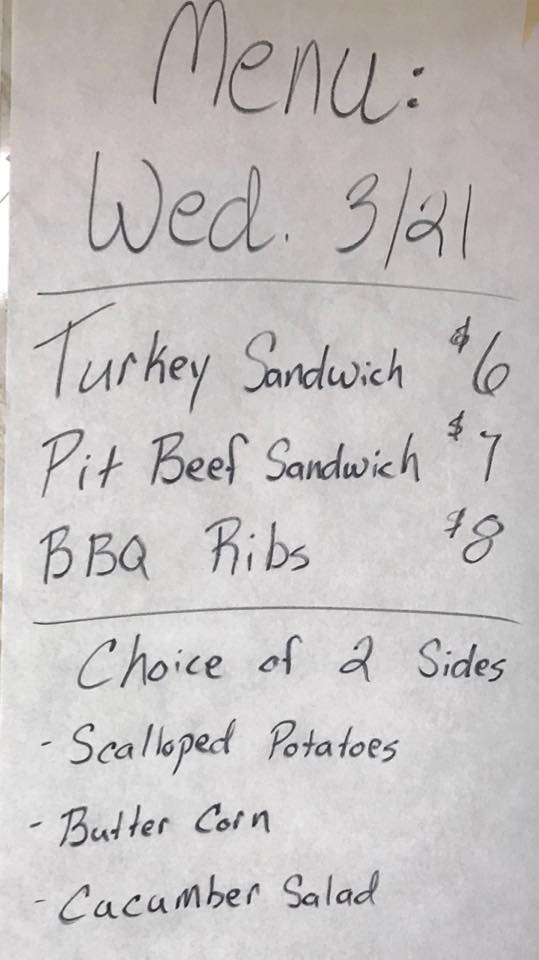 Menu:
Wed. 3/21
Turkey Sandwich $6
Pit Beef Sandwich $7
BBQ Ribs $8
Choice of 2 Sides
- Scalloped Potatoes
- Butter Corn
- Cucumber Salad